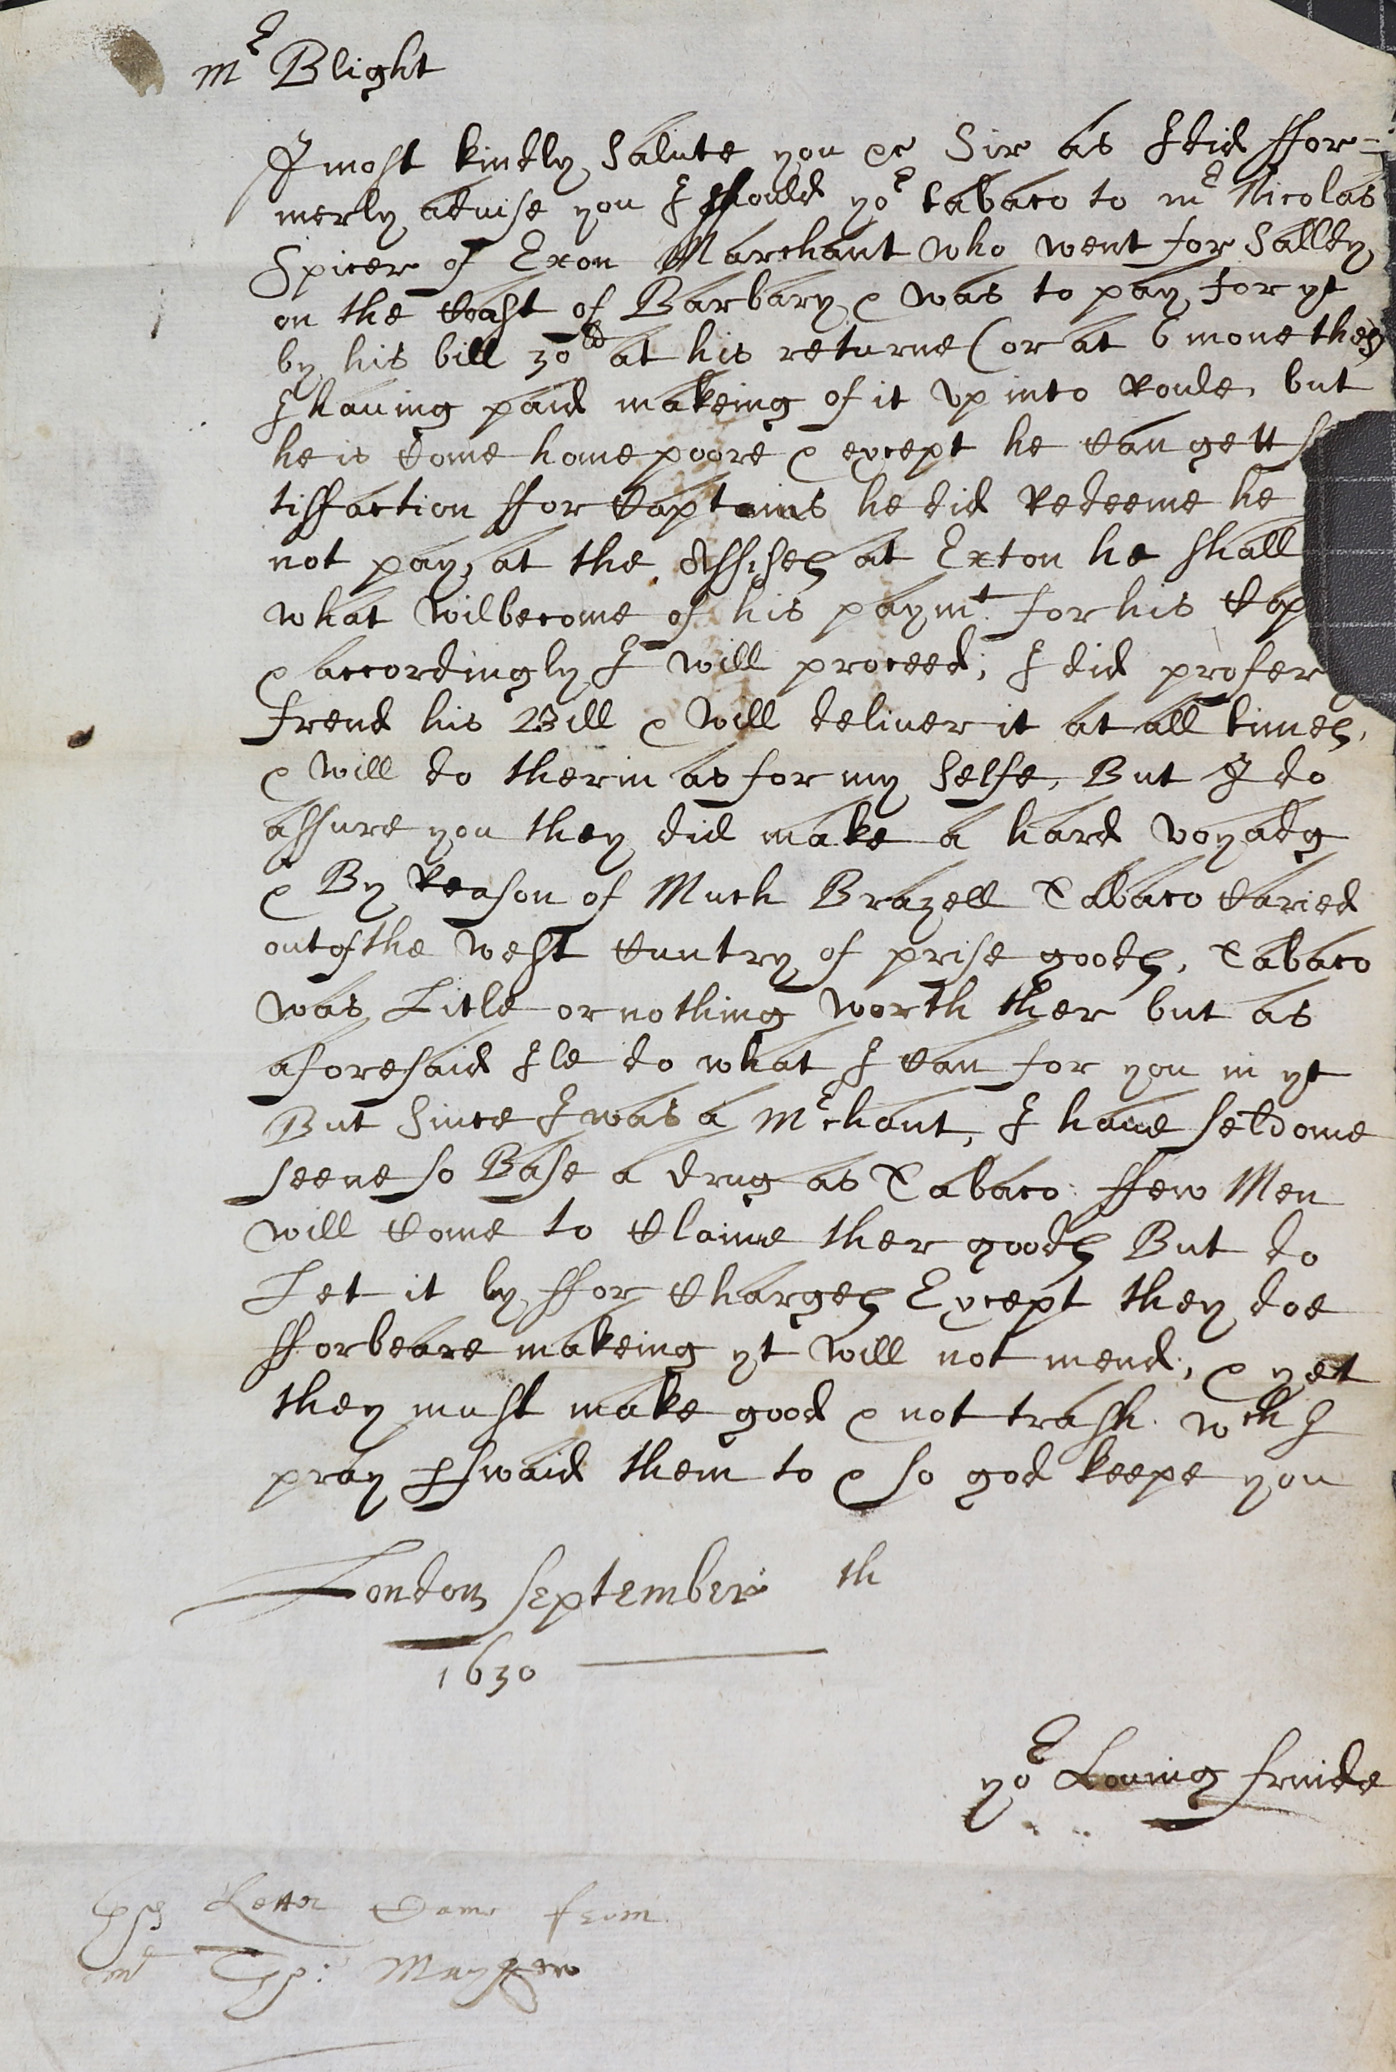 mr Blight
I most kindly Salute you &c Sir as I did ffor=
merly aduise you I should yor tabaco to mr Nicolas
Spicer of Exon Marchant who went for Salley
on the Coast of Barbary & was to pay for yt
by his bill 30ld at his returne (or at 6 monethes)
I hauing paid makeing of it vp into Roule, but
he is Come home poore & except he Can gett s
tisfaction ffor Captains he did Redeeme he
not pay, at the Assises at Exton he shall
what wilbecome of his paymt for his Cap
& accordingly I will proceed; I did profer
frend his Bill & will deliuer it at all times,
& will do therin as for my selfe, But I do
assure you they did make a hard voyadg
& By Reason of Much Brazell Tabaco Caried
out of the West Cuntry of prise goods, Tabaco
was Litle or nothing worth ther but as
aforesaid Ile do what I Can for you in yt
But Since I was a Mrchant, I haue seldome
seene so Base a drug as Tabaco: ffew Men
will Come to Claime ther goods But do
Let it ly ffor Charges Except they doe
fforbeare makeing yt will not mend, & yet
they must make good & not trash. wch I
pray pswaid them to & so god keepe you
London September th
1630
yor Louing frinde
Letter Came from
mr Tho: